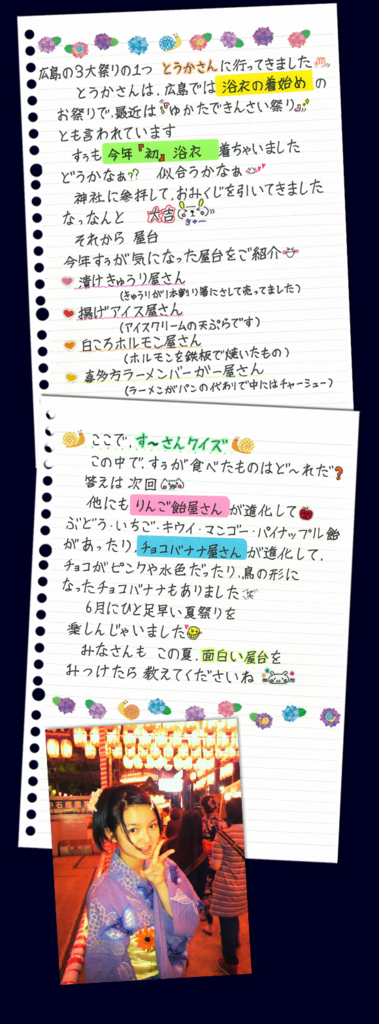 広島の3大祭りの1つ とうかさんに行ってきました
とうかさんは、広島では 浴衣の着始め の
お祭りで、最近は『ゆかたできんさい祭り』
とも言われています
すぅも 今年『初』浴衣 着ちゃいました
どうかなぁ?? 似合うかなぁ
神社に参拝して、おみくじを引いてきました
なっなんと 大吉
きゃー
それから 屋台
今年すぅが気になった屋台をご紹介
漬けきゅうり屋さん
(きゅうりが1本割り箸にさして売ってました)
揚げアイス屋さん
(アイスクリームの天ぷらです)
白ころホルモン屋さん
(ホルモンを鉄板で焼いたもの)
喜多方ラーメンバーガー屋さん
(ラーメンがパンの代わりで中にはチャーシュー)
ここで、す〜さんクイズ
この中で、すぅが食べたものはど〜れだ?
答えは次回
他にも りんご飴屋さん が進化して
ぶどう・いちご・キウイ・マンゴー・パイナップル飴
があったり、チョコバナナ屋さん が進化して、
チョコがピンクや水色だったり、鳥の形に
なったチョコバナナもありました
6月にひと足早い夏祭りを
楽しんじゃいました
みなさんも この夏、面白い屋台を
みっけたら 教えてくださいね